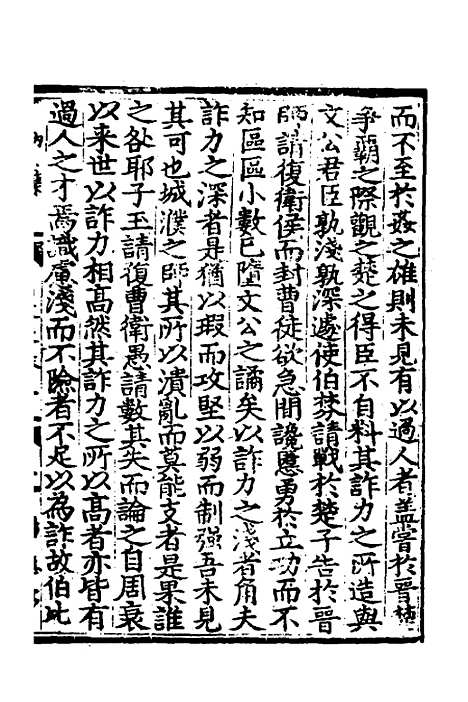 而不至於姦之雄則未見有以過人者蓋嘗於晉楚
爭霸之際觀之楚之得臣不自料其詐力之所造與
文公君臣孰淺孰深遽使伯棼請戰於楚子告於晉
師請復衛侯而封曹徒欲急間讒慝勇於立功而不
知區區小數已墮文公之譎矣以詐力之淺者角夫
詐力之深者是猶以瑕而攻堅以弱而制強吾未見
其可也城濮之師其所以潰亂而莫能支者是果誰
之咎耶子玉請復曹衛愚請數其失而論之自周衰
以来世以詐力相高然其詐力之所以高者亦皆有
過人之才焉識慮淺而不險者不足以為詐故伯比